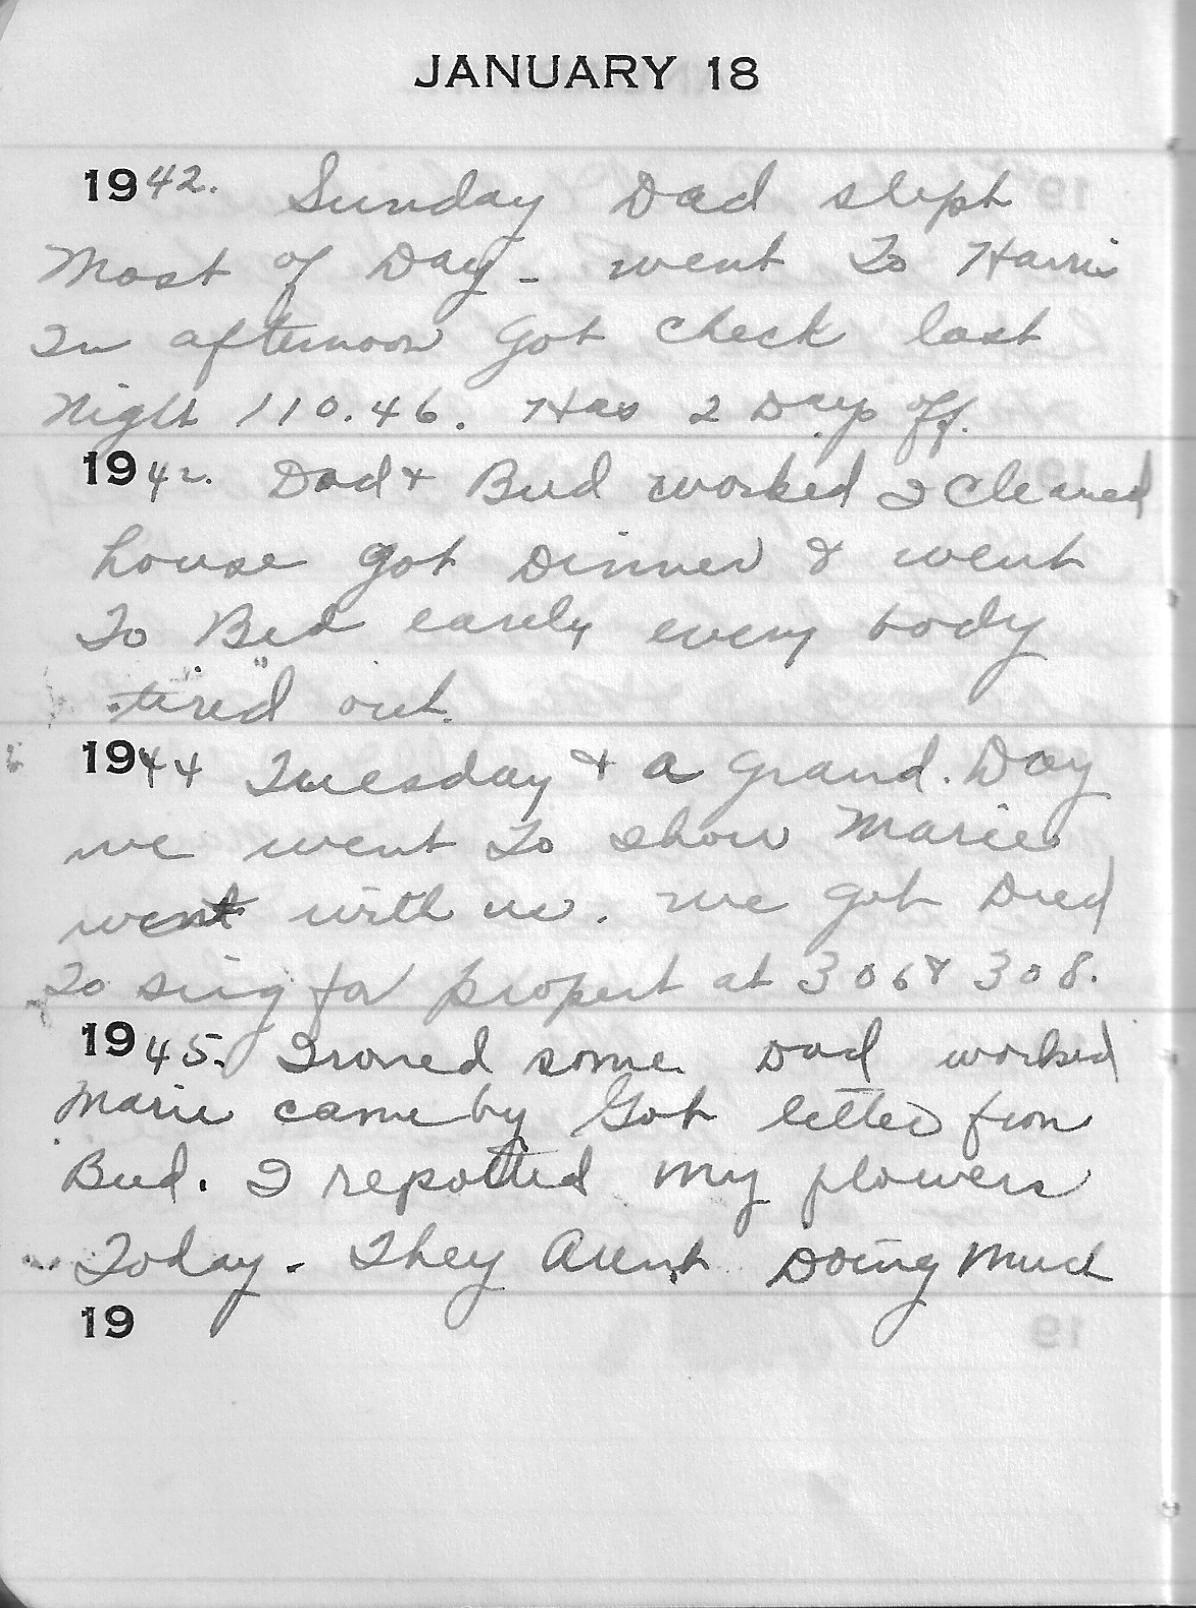 JANUARY 18
1942. Sunday Dad slept
Most of Day - went To Harris
In afternoon Got Check last
Night 110.46. Has 2 Days off.
1942. Dad & Bud worked I Cleaned
house got Dinner & went
To Bed early every body
tired out.
1944 Tuesday & a grand. Day
we went To show Marie
went with us. we got Deed
To sing for propert at 306 & 308.
1945. Ironed some Dad worked
Marie came by Got letter from
Bud. I repotted my flowers
Today. They Arent Doing Much
19